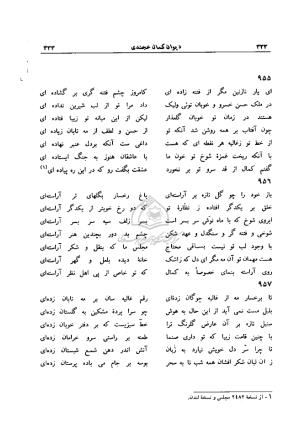 ۳۳۳ دیوان کمال خجندی ۳۳۳
۹۵۵
ای یار نازنین مگر از فتنه زاده ای کامروز چشم فتنه گری بر گشاده ای
در ملک حسن خسرو و خوبان توئی ولیک داد مرا تو از لب شیرین نداده ای
هستند در زمان تو خوبان گلعذار لیکن از این میانه تو زیبا فتاده ای
چون آفتاب بر همه روشن شد آنکه تو از حسن و لطف از مه تابان زیاده ای
از خط تو زغالیه هر طره می برد داغی ست آنکه بردل عنبر نهاده ای
با آنکه ریخت غمزه شوخ تو خون ما با عاشقان هنوز به جنگ ایستاده ای
گفتم کمال از قد سرو تو بر بخورد عشقت بگفت رو که در این ره پیاده ای (۱)
۹۵۶
باز خود را چو گل تازه بر آراسته‌ای باغ رخسار بگلهای تر آراسته‌ای
بر یکدگر افتاده ز نظارهٔ تو که رخ خوبتر از یکدگر آراسته‌ای
ابروی شوخ که با ماه نوش سر بسر است بسر زلف سیه سر بسر آراسته‌ای
شوخی و فتنه گر و سنگدل و عهد شکن چشم بد دور بچندین هنر آراسته‌ای
با وجود لب تو نیست بساقی محتاج مجلس ما که بنقل و شکر آراسته‌ای
هست مهمان تو آن مه مگر ای دل که زاشک خانهٔ دیده بلعل و گهر آراسته‌ای
روی آراسته بنمای خصوصاً به کمال که تو خاص از پی اهل نظر آراسته‌ای
۹۵۷
تا برخسار مه از غالیه چوگان زده‌ای رقم غالیه سان بر مه تابان زده‌ای
بلبل مست نمی آید از افغان برهم چو سرا پردهٔ مشکین به گلستان زده‌ای
سنبل تازه بر آن عارض گلرنگ ترا خط سبزیست که بر دفتر خوبان زده‌ای
به قد سرو بماند که تو داری صنما طعنه بر راستی سرو خرامان زده‌ای
تا چرا سر دل خویش نیارد به زبان آتش اندر دهن شمع شبستان زده‌ای
ز آن لبان شکر افشان همه شب تا به سحر بوسه بر جام می و پسته خندان زده‌ای
۱ - از نسخهٔ ۲۴۸۲ مجلس و نسخهٔ لندن.